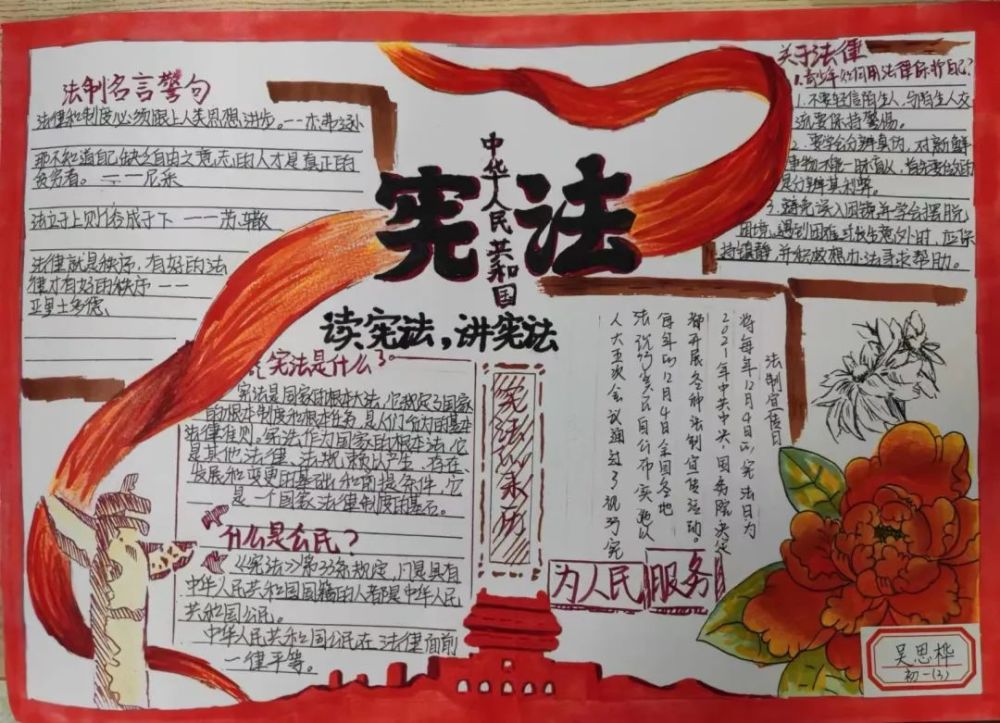 法制名言警句
法律和制度必须跟上人类思想进步。--杰弗逊
那不知道自己缺乏自由之意志的人才是真正的
贫穷者。——尼采
法立于上则俗成于下 ——苏辙
法律就是秩序,有好的法
律才有好的秩序——
亚里士多德、
中华人民共和国
宪法
读宪法,讲宪法
关于法律
1.青少年如何用法律保护自己?
1.不要轻信陌生人,与陌生人交
流要保持警惕。
2.要学会分辨真伪,对新鲜
事物不能一味
3.避免误入困境并学会摆脱
困境,遇到困难或发生意外时,应保
持镇静,并积极想办法寻求帮助。
宪法是什么?
宪法是国家的根本大法,它规定了国家
的根本制度和根本任务,是人们行为的基本
法律准则。宪法作为国家的根本法,它
是其他法律、法规赖以产生、存在、
发展和变更的基础和前提条件,它
是一个国家法律制度的基石。
什么是公民?
《宪法》第33条规定,凡是具有
中华人民共和国国籍的人都是中华人民
共和国公民。
中华人民共和国公民在法律面前
一律平等。
法制宣传日
将每年12月4日的宪法日为
2021年中共中央、国务院决定
都开展各种法制宣传活动。
每年的12月4日全国各地
法 公布实施以
人大五次会议通过了现行宪
为人民服务
吴思桦
初一(3)